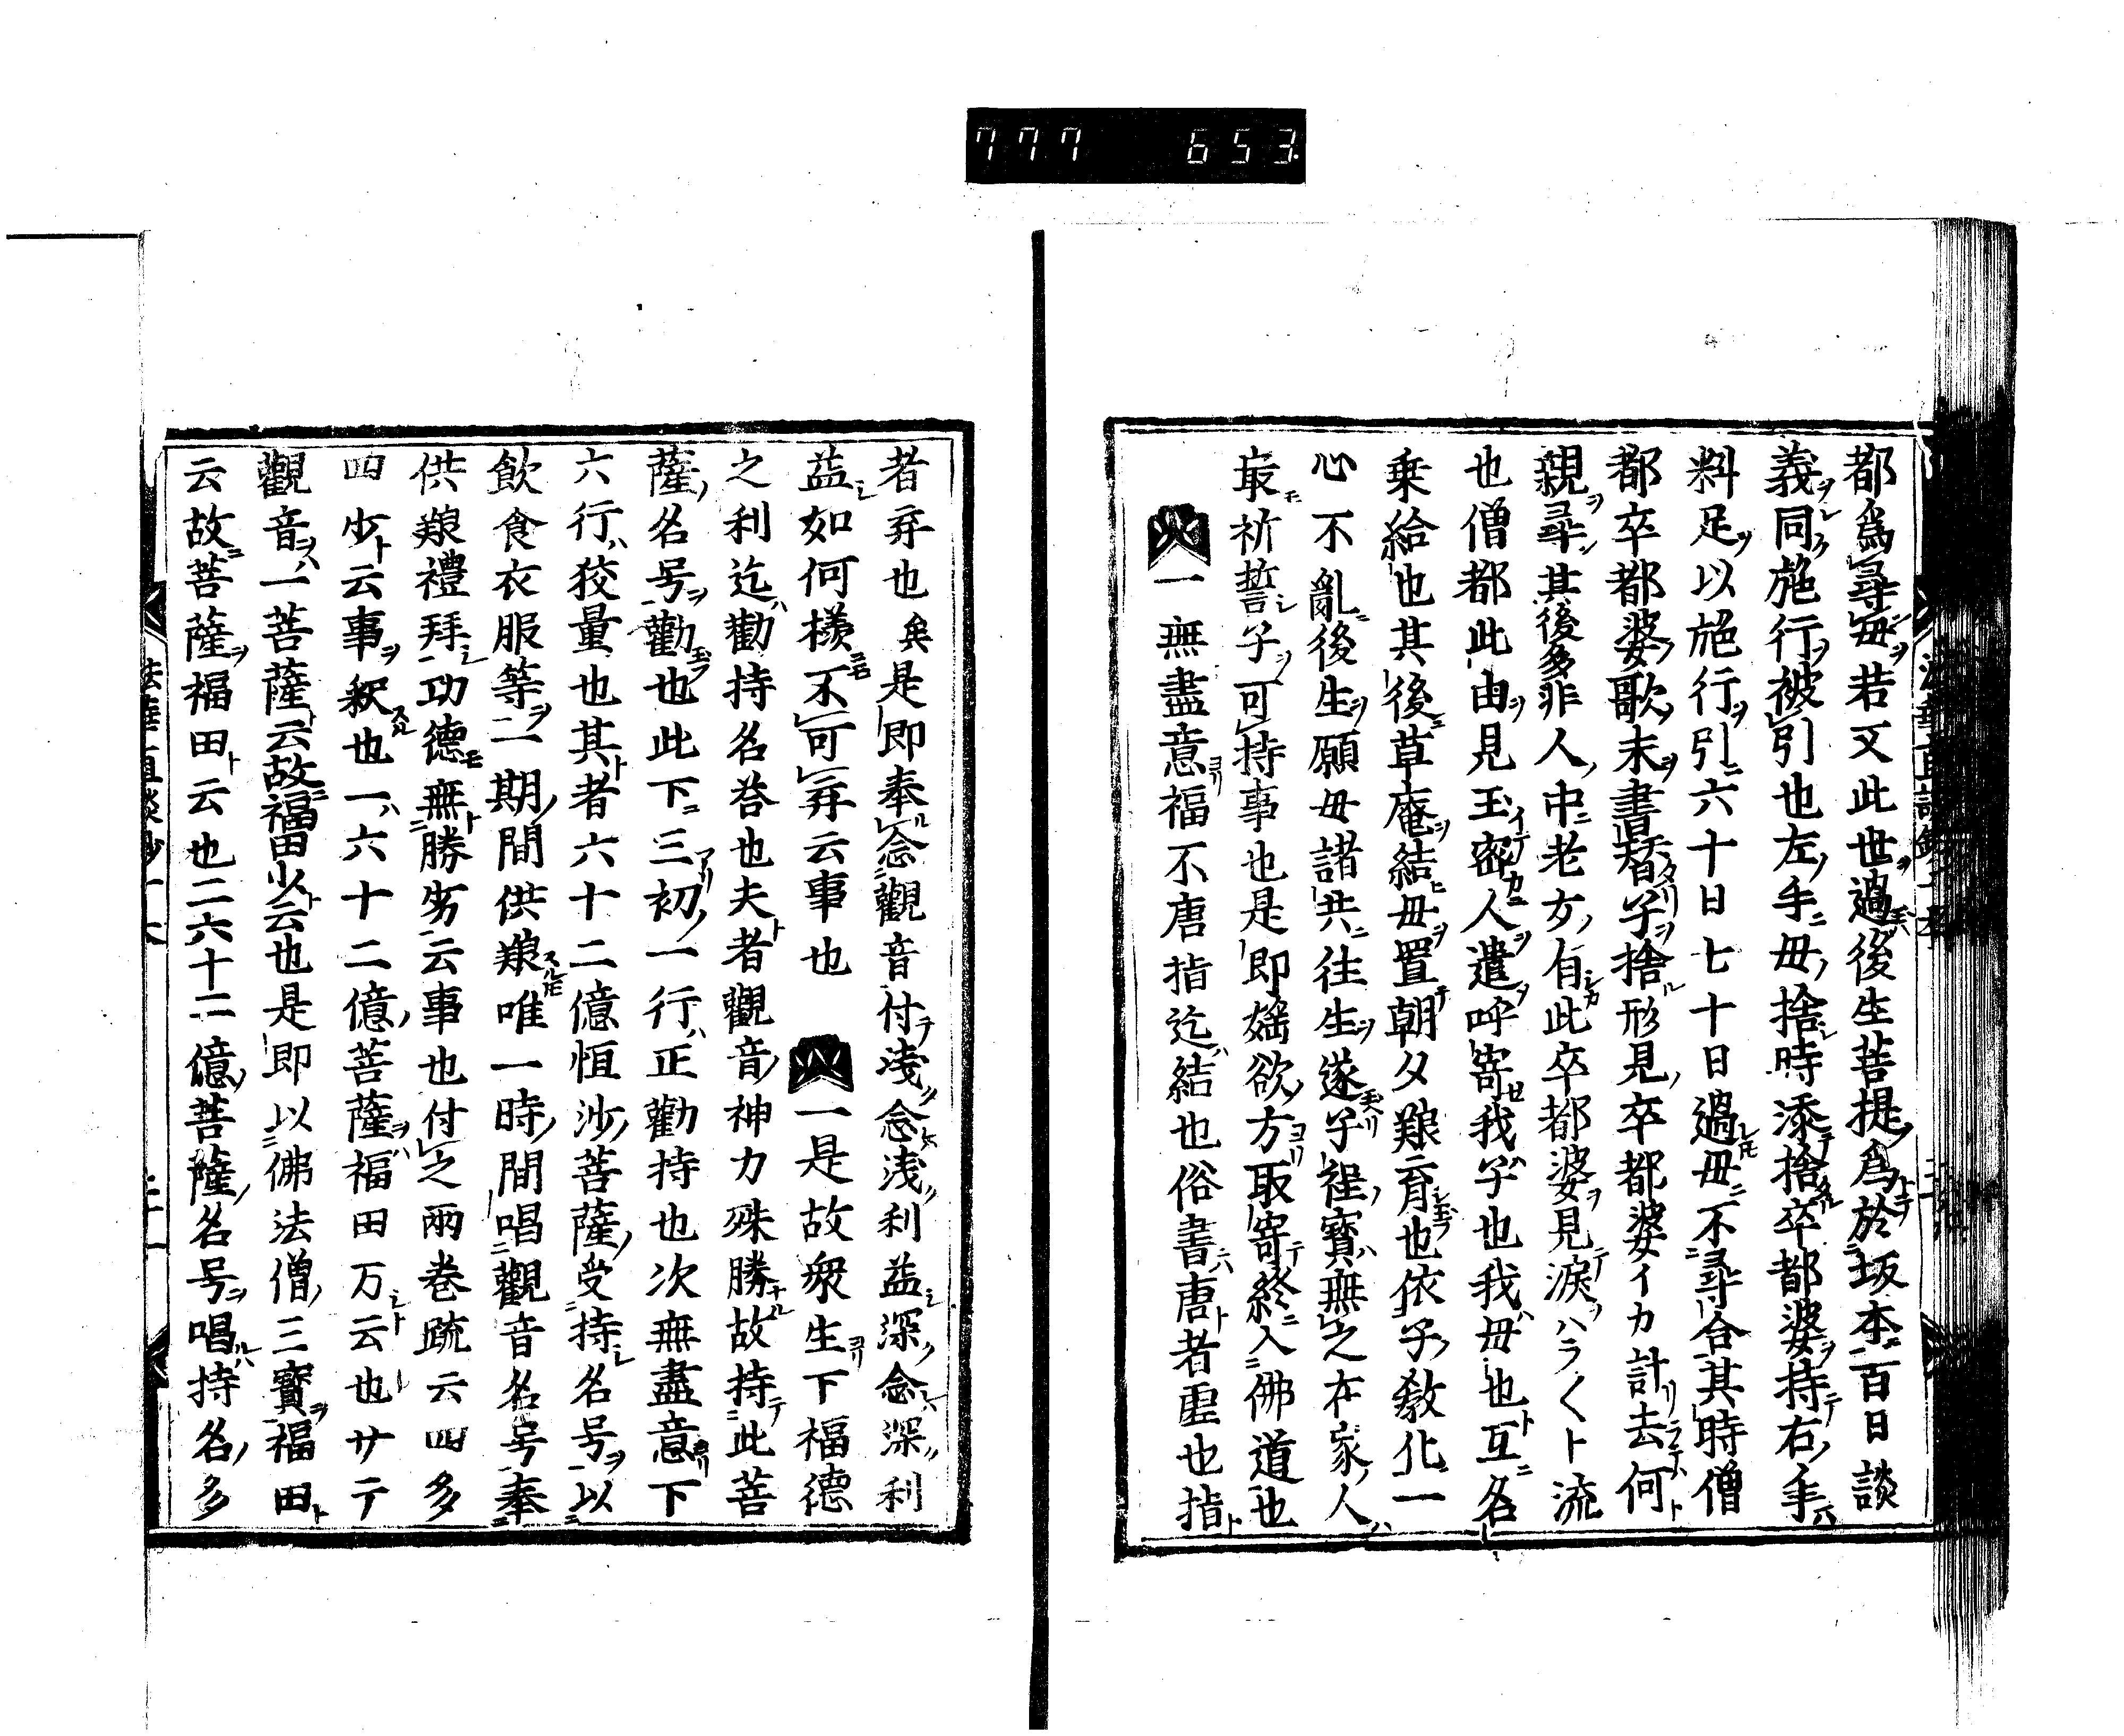 777 653
都爲尋毎若又此世過後生菩提爲於坂本百日談
義同施行被引也左手毋捨時添捨卒都婆持右手
料足以施行引六十日七十日過毋不尋合其時僧
都卒都婆歌末書替子捨形見卒都婆イカ計去何
親尋其後多非人中老女有此卒都婆見淚ハラ〱ト流
也僧都此由見玉密人遣呼寄我子也我毋也互名
乗給也其後草庵結毋置朝夕艱育也依子敎化一
心不亂後生願毋諸共往生遂子程寳無之在家人
最祈誓子可持事也是即婬欲方取寄終入佛道也
一無盡意福不唐指迄結也俗書唐者虗也指
者弃也矣是即奉念觀音付淺念淺利益深念深利
益如何樣不可弃云事也 一是故衆生下福德
之利迄勸持名荅也夫者觀音神力殊勝故持此菩
薩名号勸也此下三初一行正勸持也次無盡意下
六行挍量也其者六十二億恒沙菩薩受持名号以
飲食衣服等二期間供養唯一時間唱觀音名号奉
供養禮拜功德無勝劣云事也付之兩卷䟽云四多
四少云事釈也一六十二億菩薩福田万云也サテ
觀音一菩薩云故福田少云也是即以佛法僧三寳福田
云故菩薩福田云也二六十二億菩薩名号唱持名多
法華直談鈔十末